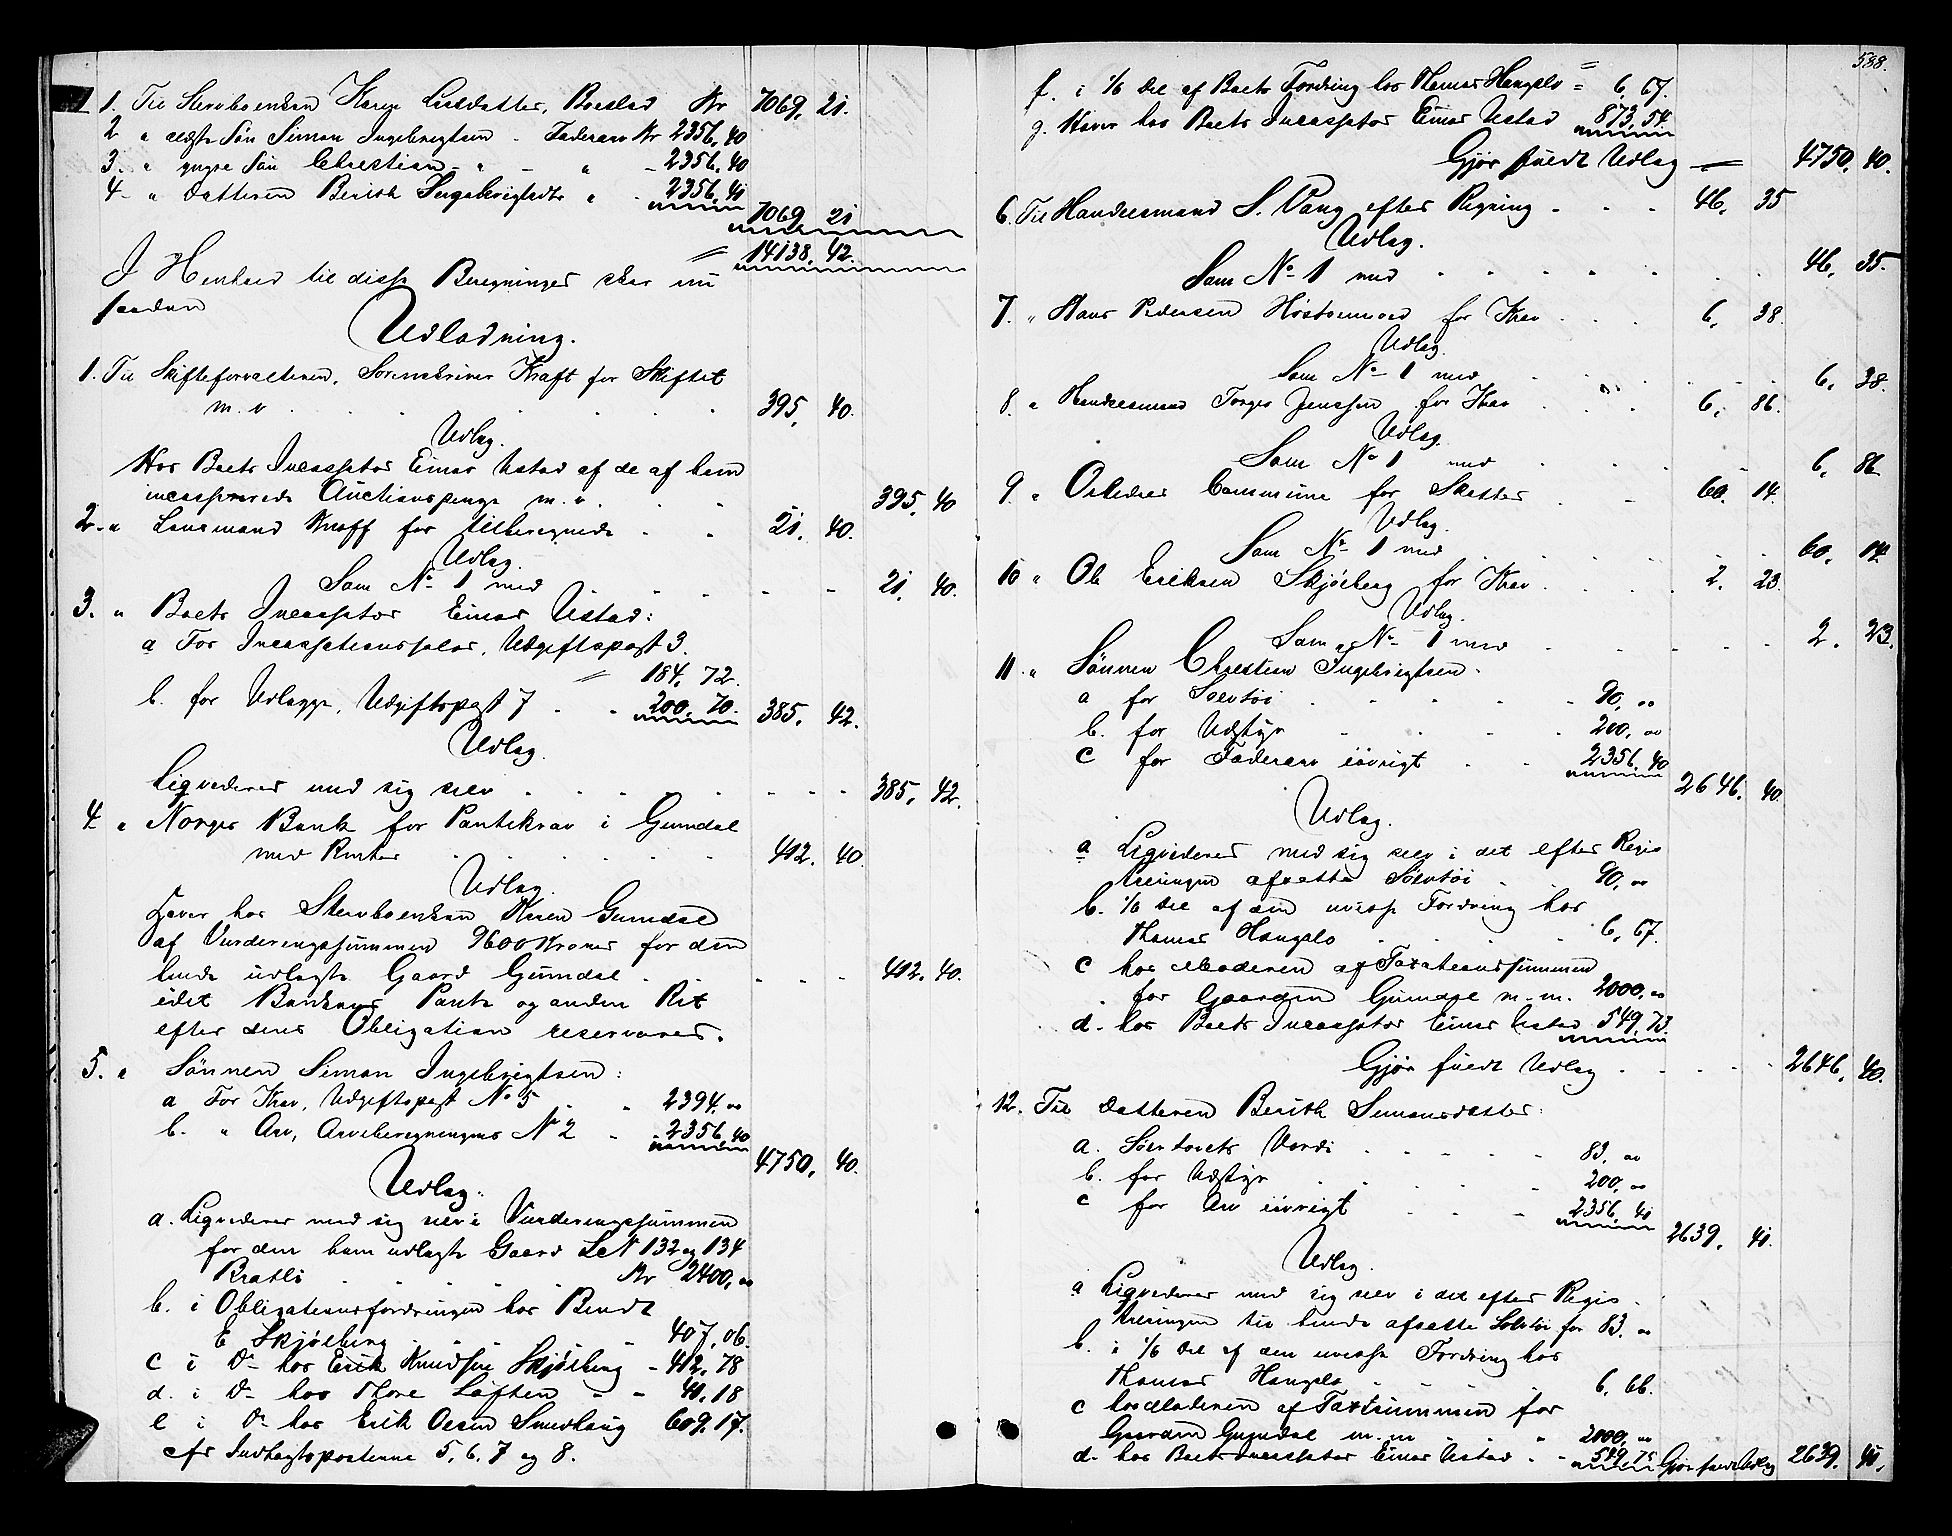 1. Til Stervboenken Karen Larsdatter, Boeslod Kr 7069, 21.
2 " ældste Søn Simon Ingebrigtsen - Faderarv Kr 2356, 40
3. " yngre Søn Christian - " - " - 2356, 40
4 - " Datteren Berith Ingebrigtsdtr " - 2356, 41
7069 21
14138, 42.
I Henhold til disse Beregninger skal nu
saadan
Udlodning.
1. Til Skifteforvalteren, Sorenskriver Kraft for Skiftet
m. v. 395, 40.
Udlæg.
Hos Boets Incassator Einar Ustad af de af ham
incasserede Auctionspenge m. v. 395, 40
2. " Lensmand Knoff for tilberegnede 21, 40.
Udlæg.
Som No 1 med 21, 40.
3. " Boets Incassator Einar Ustad:
a For Incassationssalær, Udgiftspost 3.
184, 72.
b. for Udlægge, Udgiftspost 7 - 200, 70. 385, 42.
Udlæg.
Liqviderer med sig selv 385, 42.
4 " Norges Bank for Pantekrav i Gumdal
med Renter 412. 40.
Udlæg.
Hæver hos Stervboenken Karen Gumdal
af Vurderingssummen 9600 Kroner for den
hende udlagte Gaard Gumdal 412. 40.
idet Bankens Pant og anden Ret
efter dens Obligation reserveres.
5. " Sønnen Simon Ingebrigtsen:
a For Krav, Udgiftspost No 5 2394. "
b. " Arv, Arveberegningens No 2 - 2356, 40
4750, 40.
Udlæg.
a. Liqviderer med sig selv i Vurderingssummen
for den ham udlagte Gaard LN 132 og 134
Bratli Kr 2400, "
b. i Obligationsfordringen hos Bendt
E Skjølberg 407, 06.
c i Do hos Erik Knudsen Skjølberg - 412, 78
d. i Do hos Thore Løften - - 41. 18
e i Do hos Erik Olsen Smedhaug 609. 17.
cfr Indtægtsposterne 5, 6, 7 og 8.
588.
f. i 1/6 Del af Boets Fordring hos Thomas Hangslo = 6, 67.
g. Hæver hos Boets Incassator Einar Ustad 873, 54.
Gjør fuldt Udlæg — 4750, 40.
6. Til Handelsmand S. Vang efter Regning - - - 46, 35
Udlæg.
Som No 1 med 46, 35.
7. " Hans Pedersen Høstonmoed for Krav 6, 38.
Udlæg.
Som No 1 med 6, 38.
8. " Handelsmand Torger Jenssen for Krav 6, 86.
Udlæg.
Som No 1 med 6, 86
9. " Orkedals Commune for Skatter 60. 14.
Udlæg.
Som No 1 med 60. 14.
10 " Ole Eriksen Skjølberg for Krav 2. 23.
Udlæg.
Som No 1 med 2. 23.
11. " Sønnen Christian Ingebrigtsen.
a for Sølvtøi 90, "
b. for Udstyr 200, "
c for Faderarv iøvrigt 2356, 40
2646. 40.
Udlæg.
a Liqviderer med sig selv i det efter Regis
treringen afsatte Sølvtøi 90, "
b. 1/6 Del af den uvisse Fordring hos
Thomas Hangslo 6, 67.
c hos Moderen af Taxationssummen
for Gaarden Gumdal m. m. 2000, "
d. hos Boets Incassator Einar Ustad 549, 73.
Gjør fuldt Udlæg 2646, 40.
12. Til Datteren Berith Simonsdatter:
a. Sølvtøiets Værdi 83, "
b. for Udstyr 200, "
c for Arv iøvrigt 2356, 41
2639, 41.
Udlæg.
a Liqviderer med sig selv i det efter Regis
treringen til hende afsatte Sølvtøi for 83, "
b. i 1/6 Del af den uvisse Fordring hos
Thomas Hangslo 6, 66.
c hos Moderen af Taxtsummen for
Gaarden Gumdal m. m 2000, "
d. hos Boets Incassator Einar Ustad - - 549, 75 Gjør fuldt Udlæg 2639, 41.